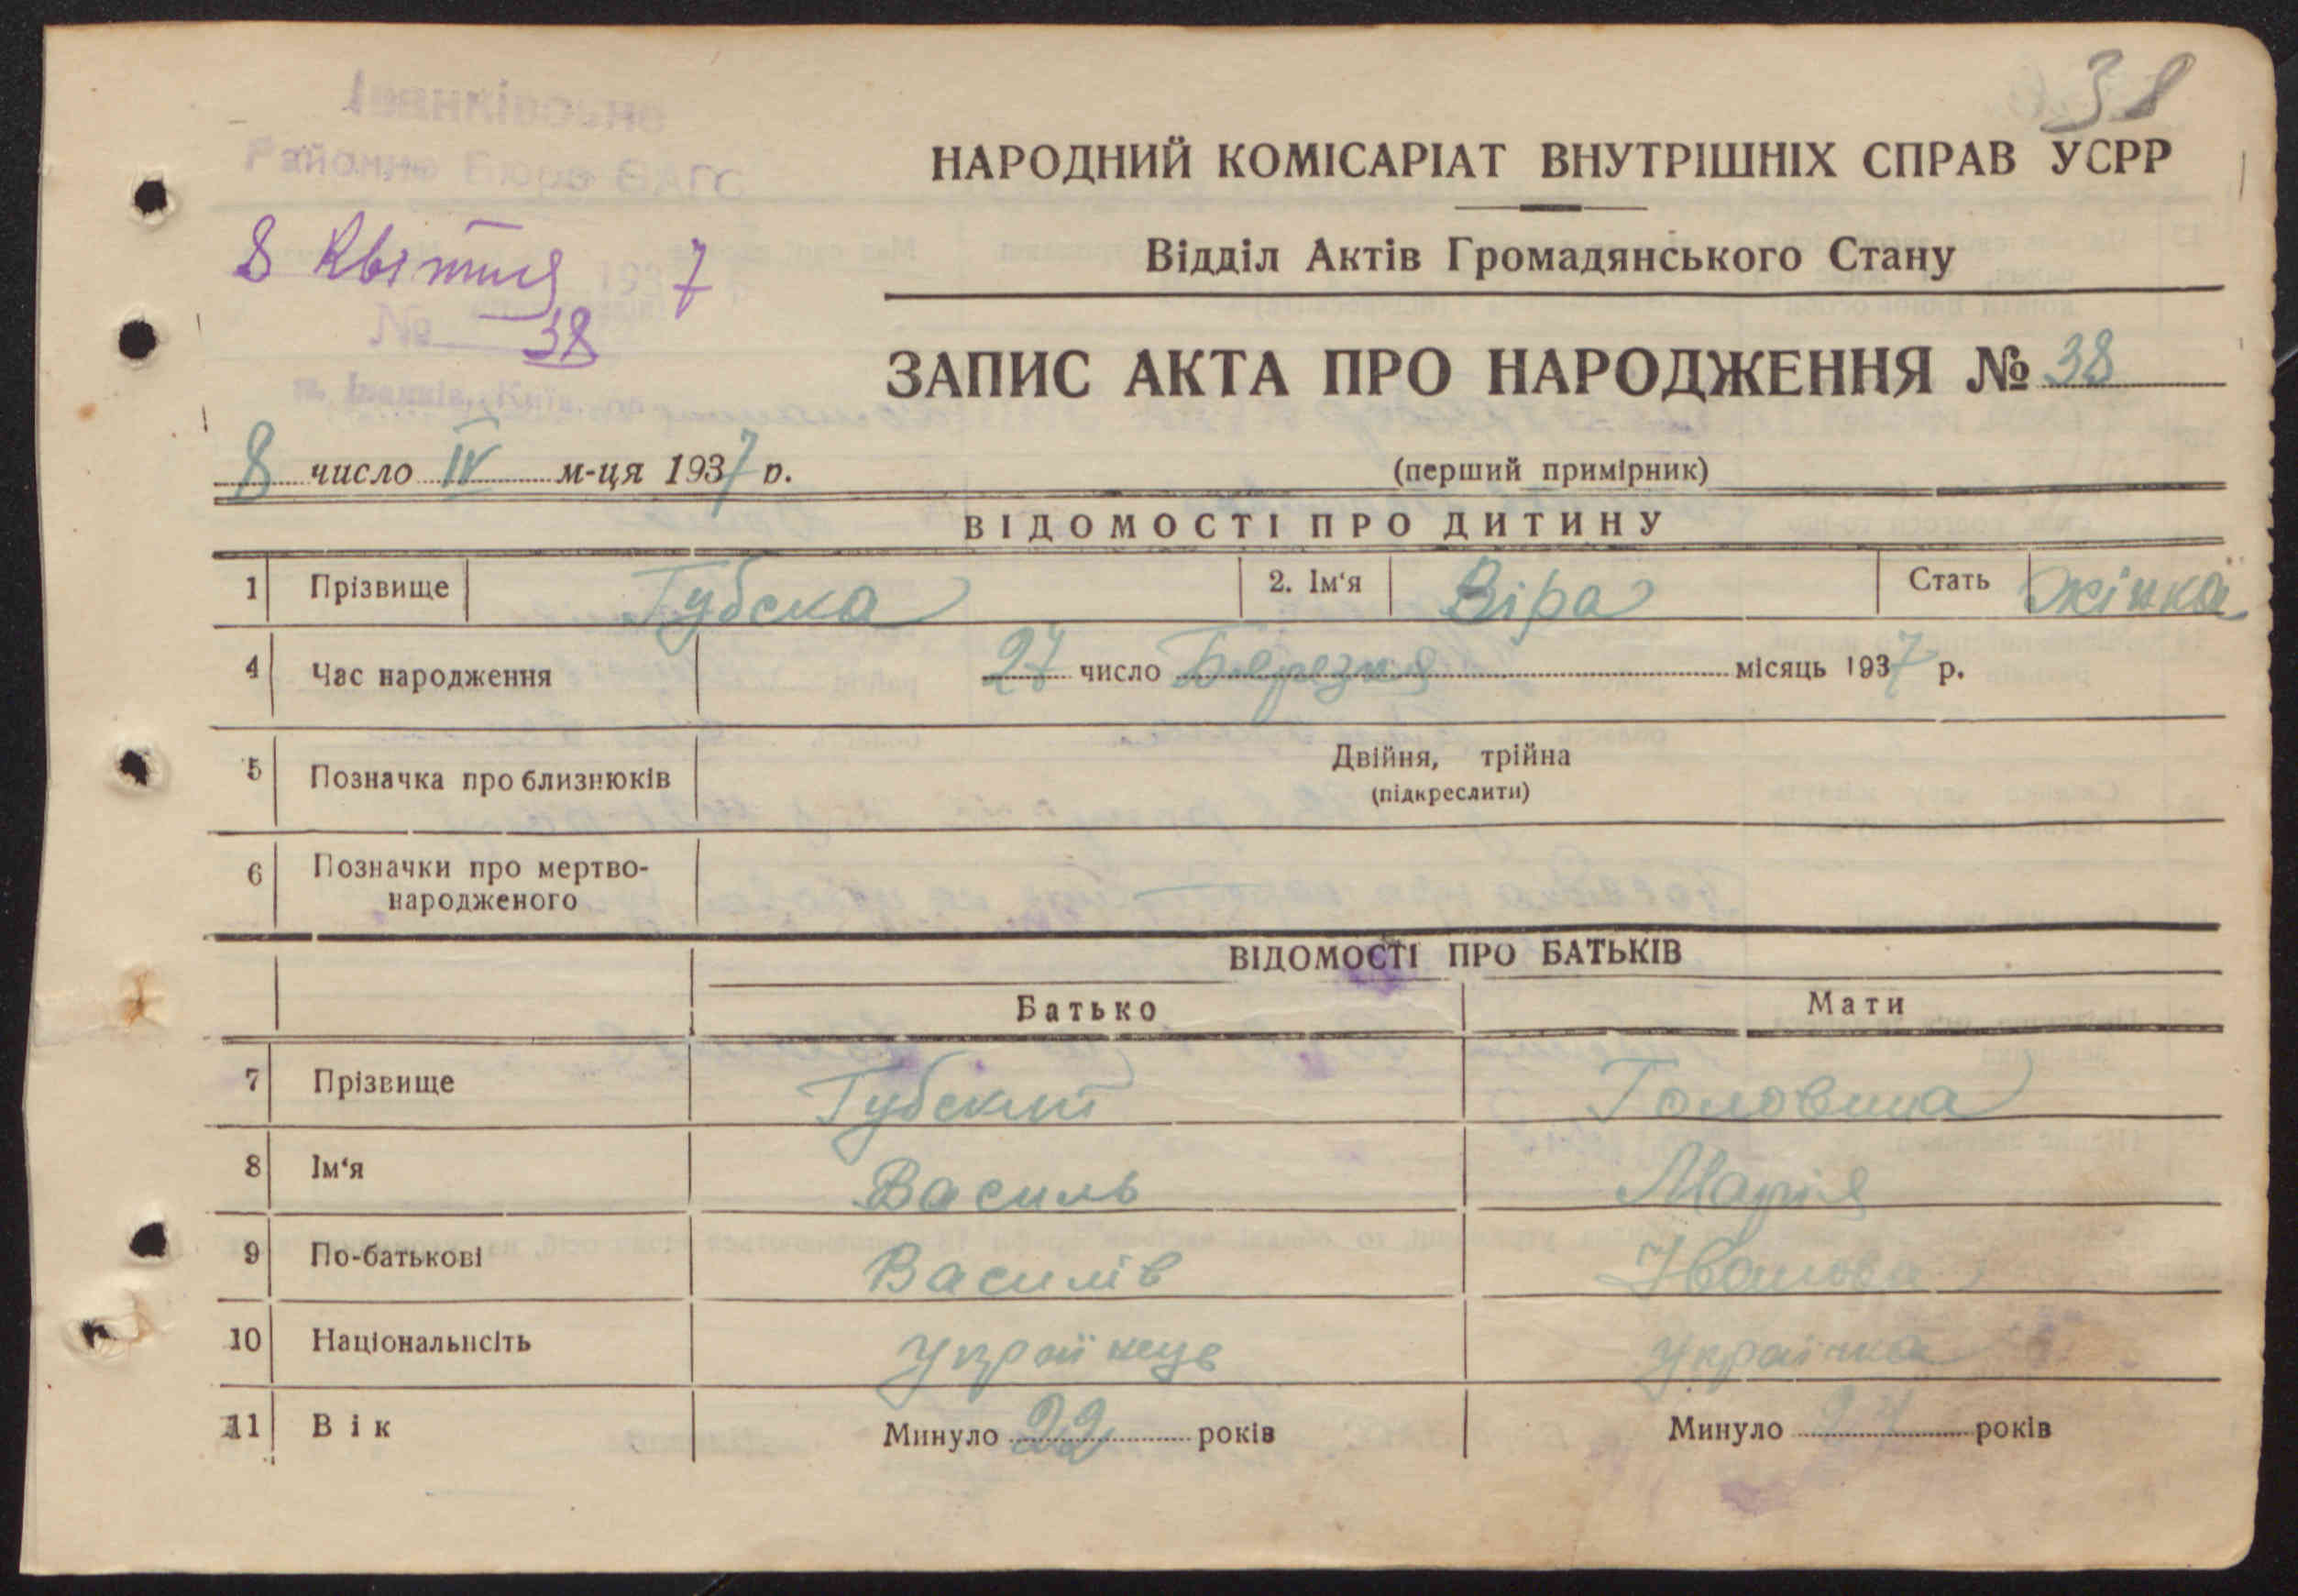 38
Іванківське
Районне Бюро ЗАГС
8 Квітня 1937
№ 38
м. Іванків, Київ.
НАРОДНИЙ КОМІСАРІАТ ВНУТРІШНІХ СПРАВ УСРР
Відділ Актів Громадянського Стану
ЗАПИС АКТА ПРО НАРОДЖЕННЯ № 38
8 число IV м-ця 1937 р.
(перший примірник)
ВІДОМОСТІ ПРО ДИТИНУ
1 Прізвище Губска 2. Ім'я Віра Стать жінка
4 Час народження 27 число Березня місяць 1937 р.
5 Позначка про близнюків Двійня, трійна
(підкреслити)
6 Позначки про мертво-
народженого
ВІДОМОСТІ ПРО БАТЬКІВ
Батько Мати
7 Прізвище Губский Головина
8 Ім'я Василь Марія
9 По-батькові Василів Іванова
10 Національнсіть Українець Українка
11 Вік Минуло 22 років Минуло років